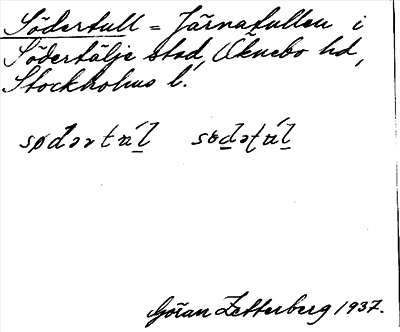 Södertull = Järnatullen i
Södertälje stad, Öknebo hd,
Stockholms l.
sødərtuÌl sɷdətúl
Göran Zetterberg 1937.